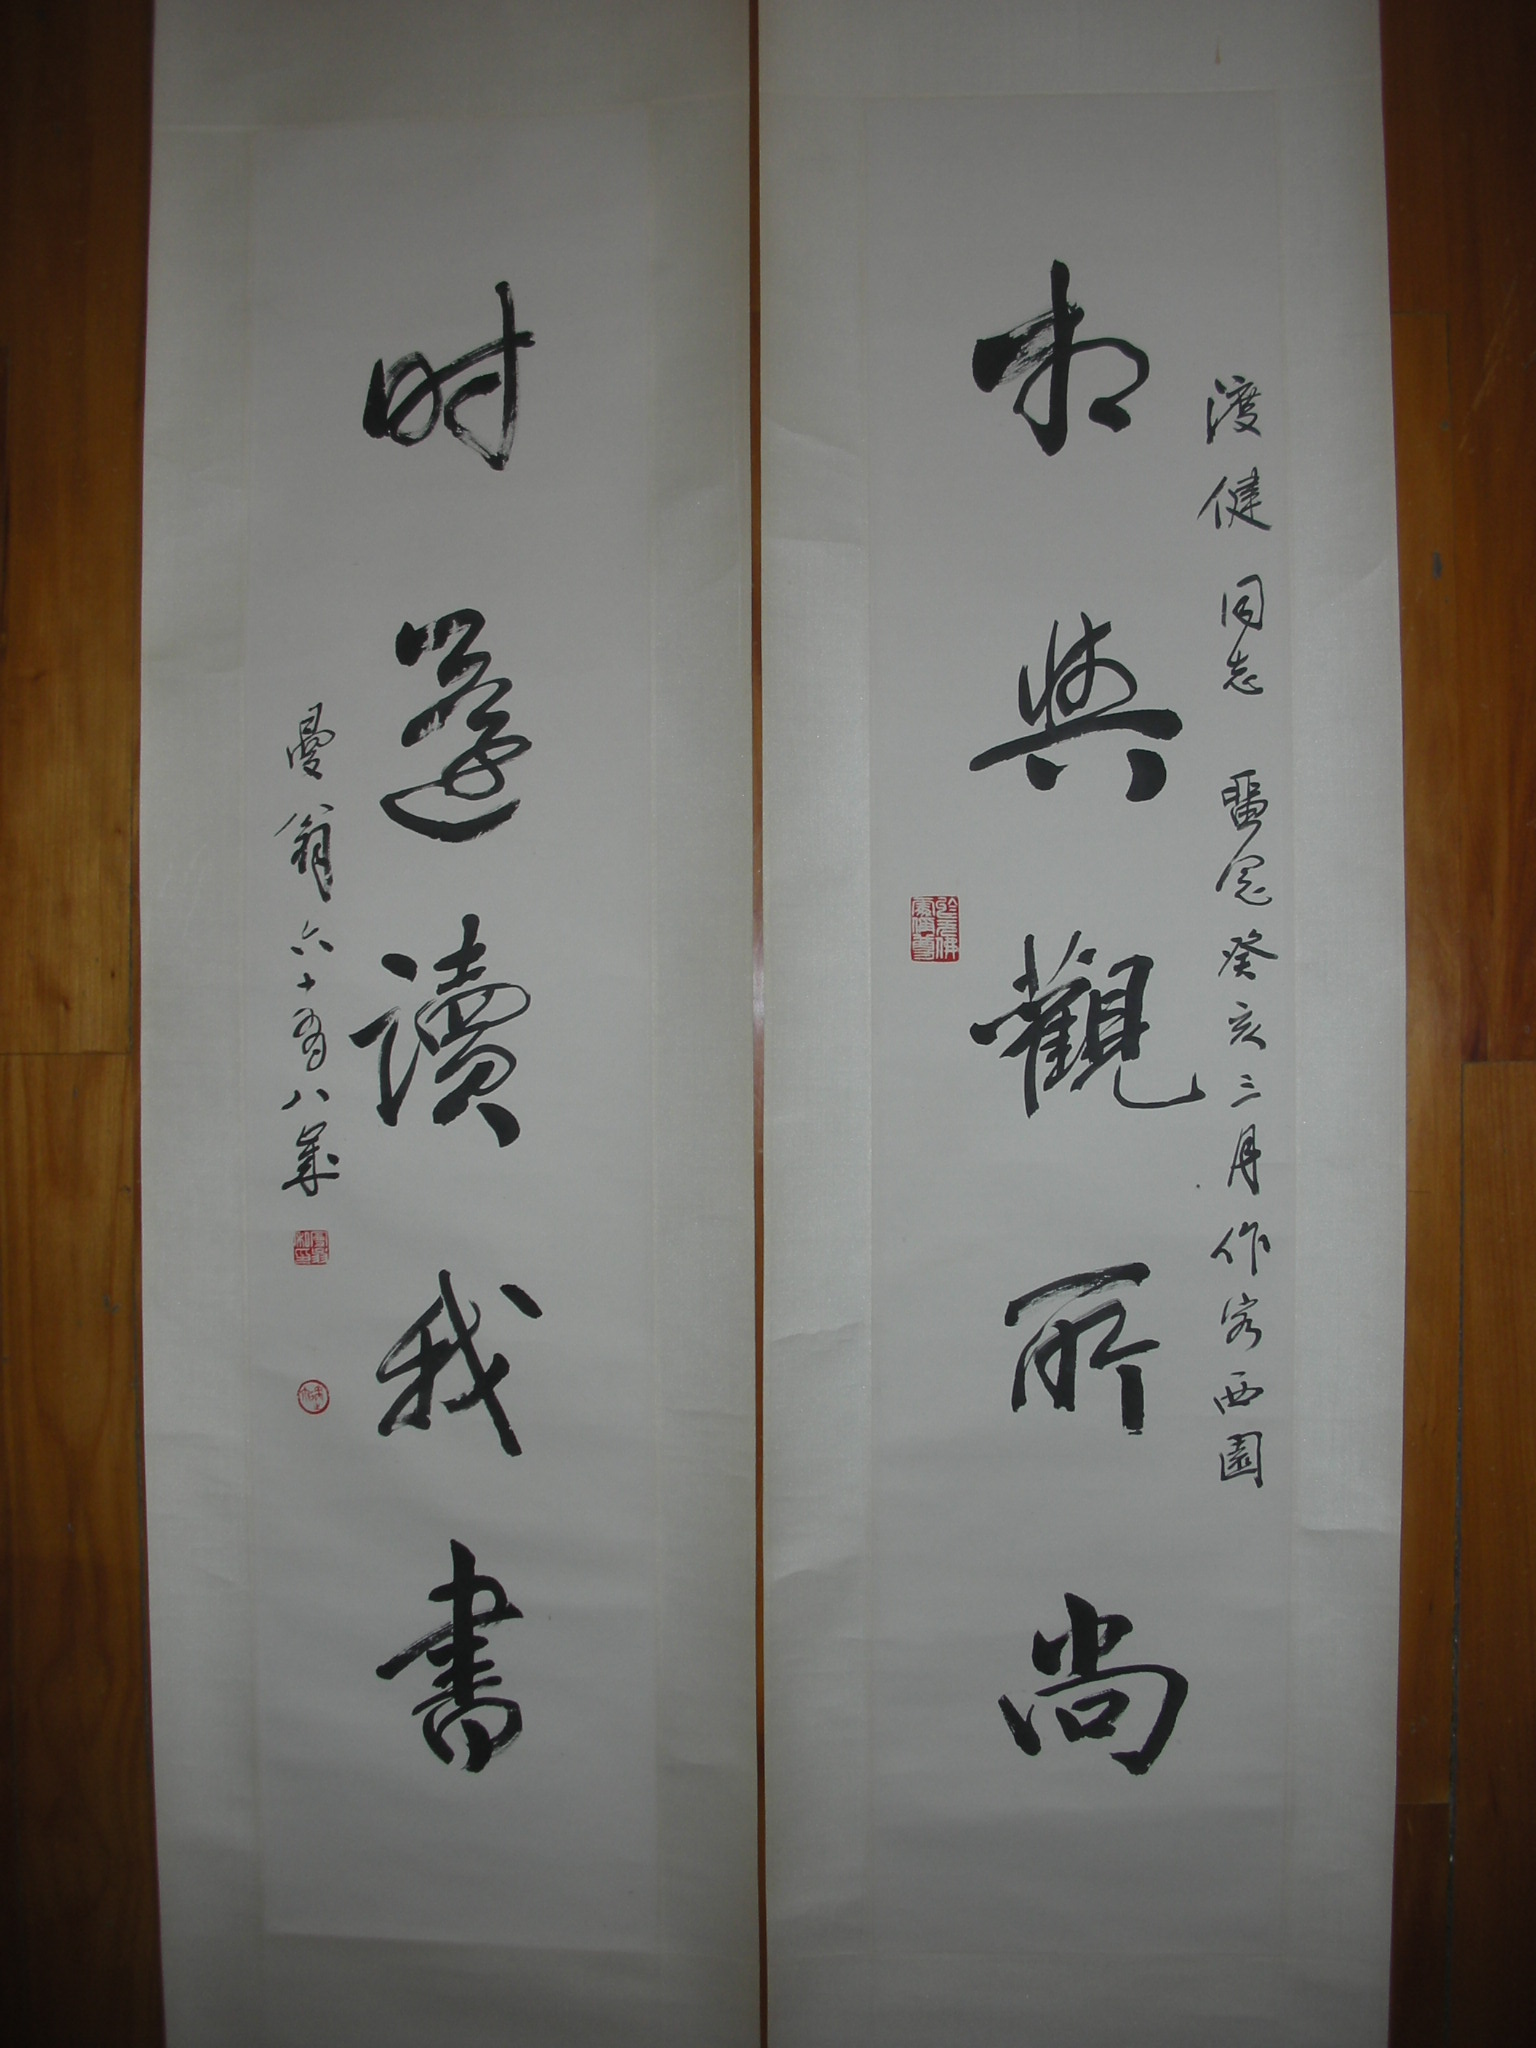 渡健同志 留念 癸亥三月作客西園
相與觀所尚
时還讀我書
曼翁六十有八歲